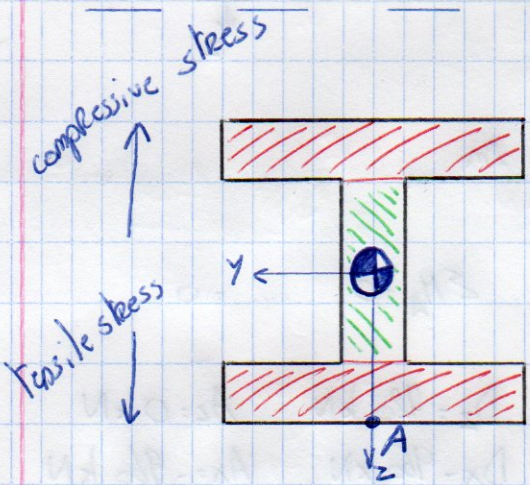 compressive stress
tensile stress
Y
A
z